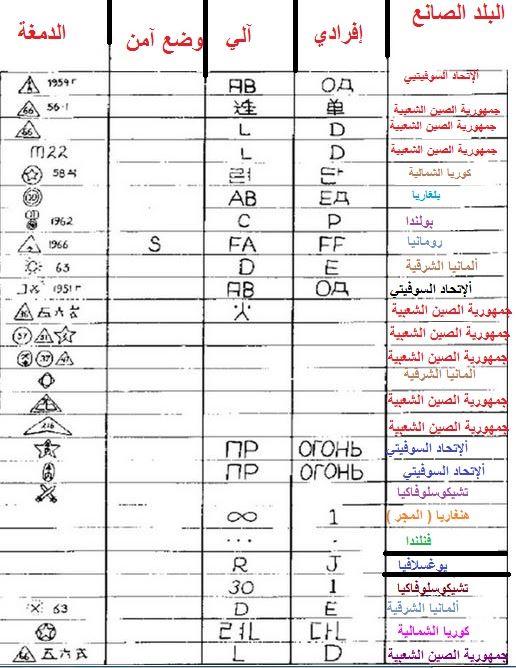 البلد الصانع إفرادي آلي وضع آمن الدمغة
ألإتحاد السوفيتيي ОД АВ 1954 г
جمهورية الصين الشعبية 单 连 66 56-1
جمهورية الصين الشعبية D L 66
جمهورية الصين الشعبية D L M22
كوريا الشمالية 단 련 58
بلغاريا ЕД АВ 10
بولندا P C 1962
رومانيا FF FA S 1966
ألمانيا الشرقية E D 63
ألإتحاد السوفيتي ОД АВ 1951 г
جمهورية الصين الشعبية 五 六
جمهورية الصين الشعبية 37
جمهورية الصين الشعبية 37
ألمانيا الشرقية
جمهورية الصين الشعبية
جمهورية الصين الشعبية 216
ألإتحاد السوفيتي ОГОНЬ ПР
ألإتحاد السوفيتي ОГОНЬ ПР
تشيكوسلوفاكيا
هنغاريا ( المجر ) 1 ∞
فنلندا . ...
يوغسلافيا J R
تشيكوسلوفاكيا 1 30
ألمانيا الشرقية E D 63
كوريا الشمالية
جمهورية الصين الشعبية D L 66 五 六